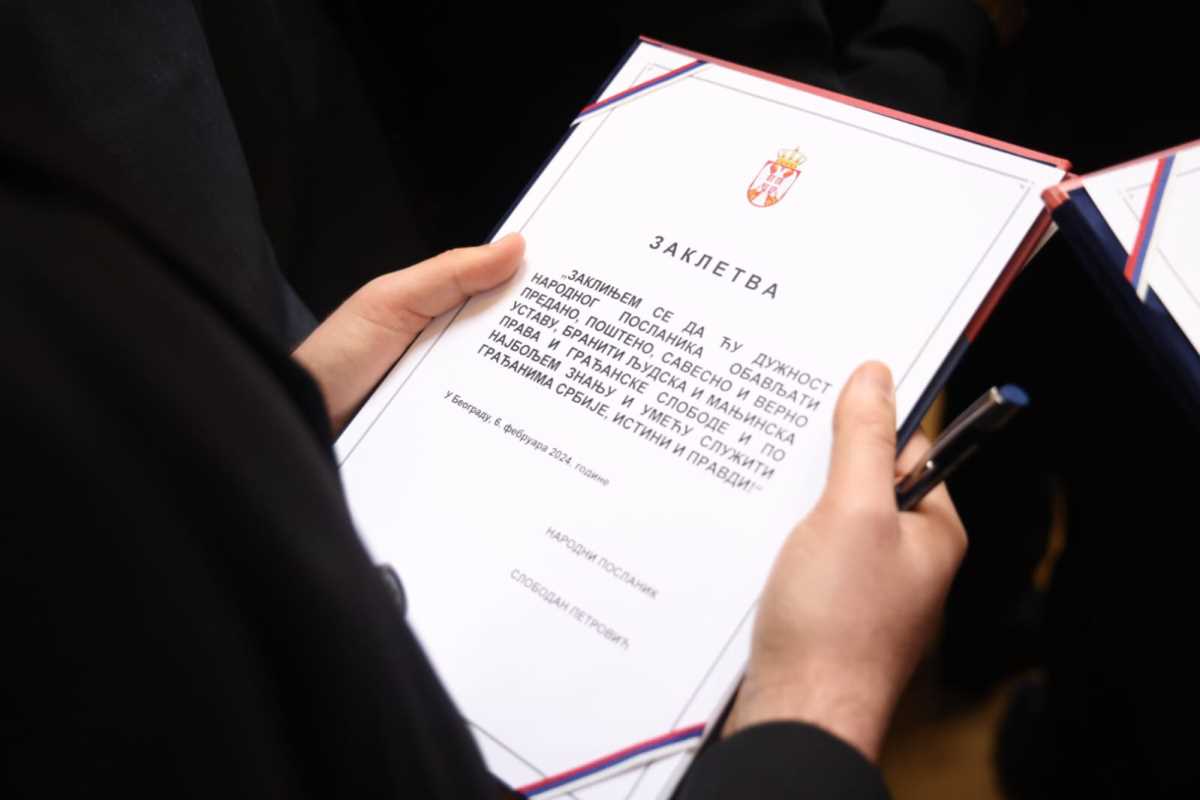 ЗАКЛЕТВА
„ЗАКЛИЊЕМ СЕ ДА ЋУ ДУЖНОСТ
НАРОДНОГ ПОСЛАНИКА ОБАВЉАТИ
ПРЕДАНО, ПОШТЕНО, САВЕСНО И ВЕРНО
УСТАВУ, БРАНИТИ ЉУДСКА И МАЊИНСКА
ПРАВА И ГРАЂАНСКЕ СЛОБОДЕ И ПО
НАЈБОЉЕМ ЗНАЊУ И УМЕЋУ СЛУЖИТИ
ГРАЂАНИМА СРБИЈЕ, ИСТИНИ И ПРАВДИ!“
У Београду, 6. фебруара 2024. године
НАРОДНИ ПОСЛАНИК
СЛОБОДАН ПЕТРОВИЋ